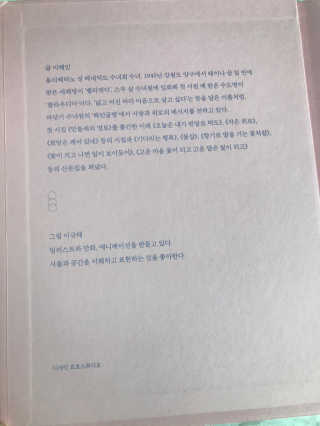 글 이해인
올리베따노 성 베네딕도 수녀회 수녀. 1945년 강원도 양구에서 태어나 삼 일 만에
받은 세례명이 '벨라뎃다', 스무 살 수녀원에 입회해 첫 서원 때 받은 수도명이
'클라우디아'이다. '넓고 어진 바다 마음으로 살고 싶다'는 뜻을 담은 이름처럼,
바닷가 수녀원의 '해인글방'에서 사랑과 위로의 메시지를 전하고 있다.
첫 시집 《민들레의 영토》를 출간한 이래 《오늘은 내가 반달로 떠도》, 《작은 위로》,
《희망은 깨어 있네》 등의 시집과 《기다리는 행복》, 《꽃삽》, 《향기로 말을 거는 꽃처럼》,
《꽃이 지고 나면 잎이 보이듯이》, 《고운 마음 꽃이 되고 고운 말은 빛이 되고》
등의 산문집을 펴냈다.
그림 이규태
일러스트와 만화, 애니메이션을 만들고 있다.
사물과 공간을 이해하고 표현하는 것을 좋아한다.
디자인